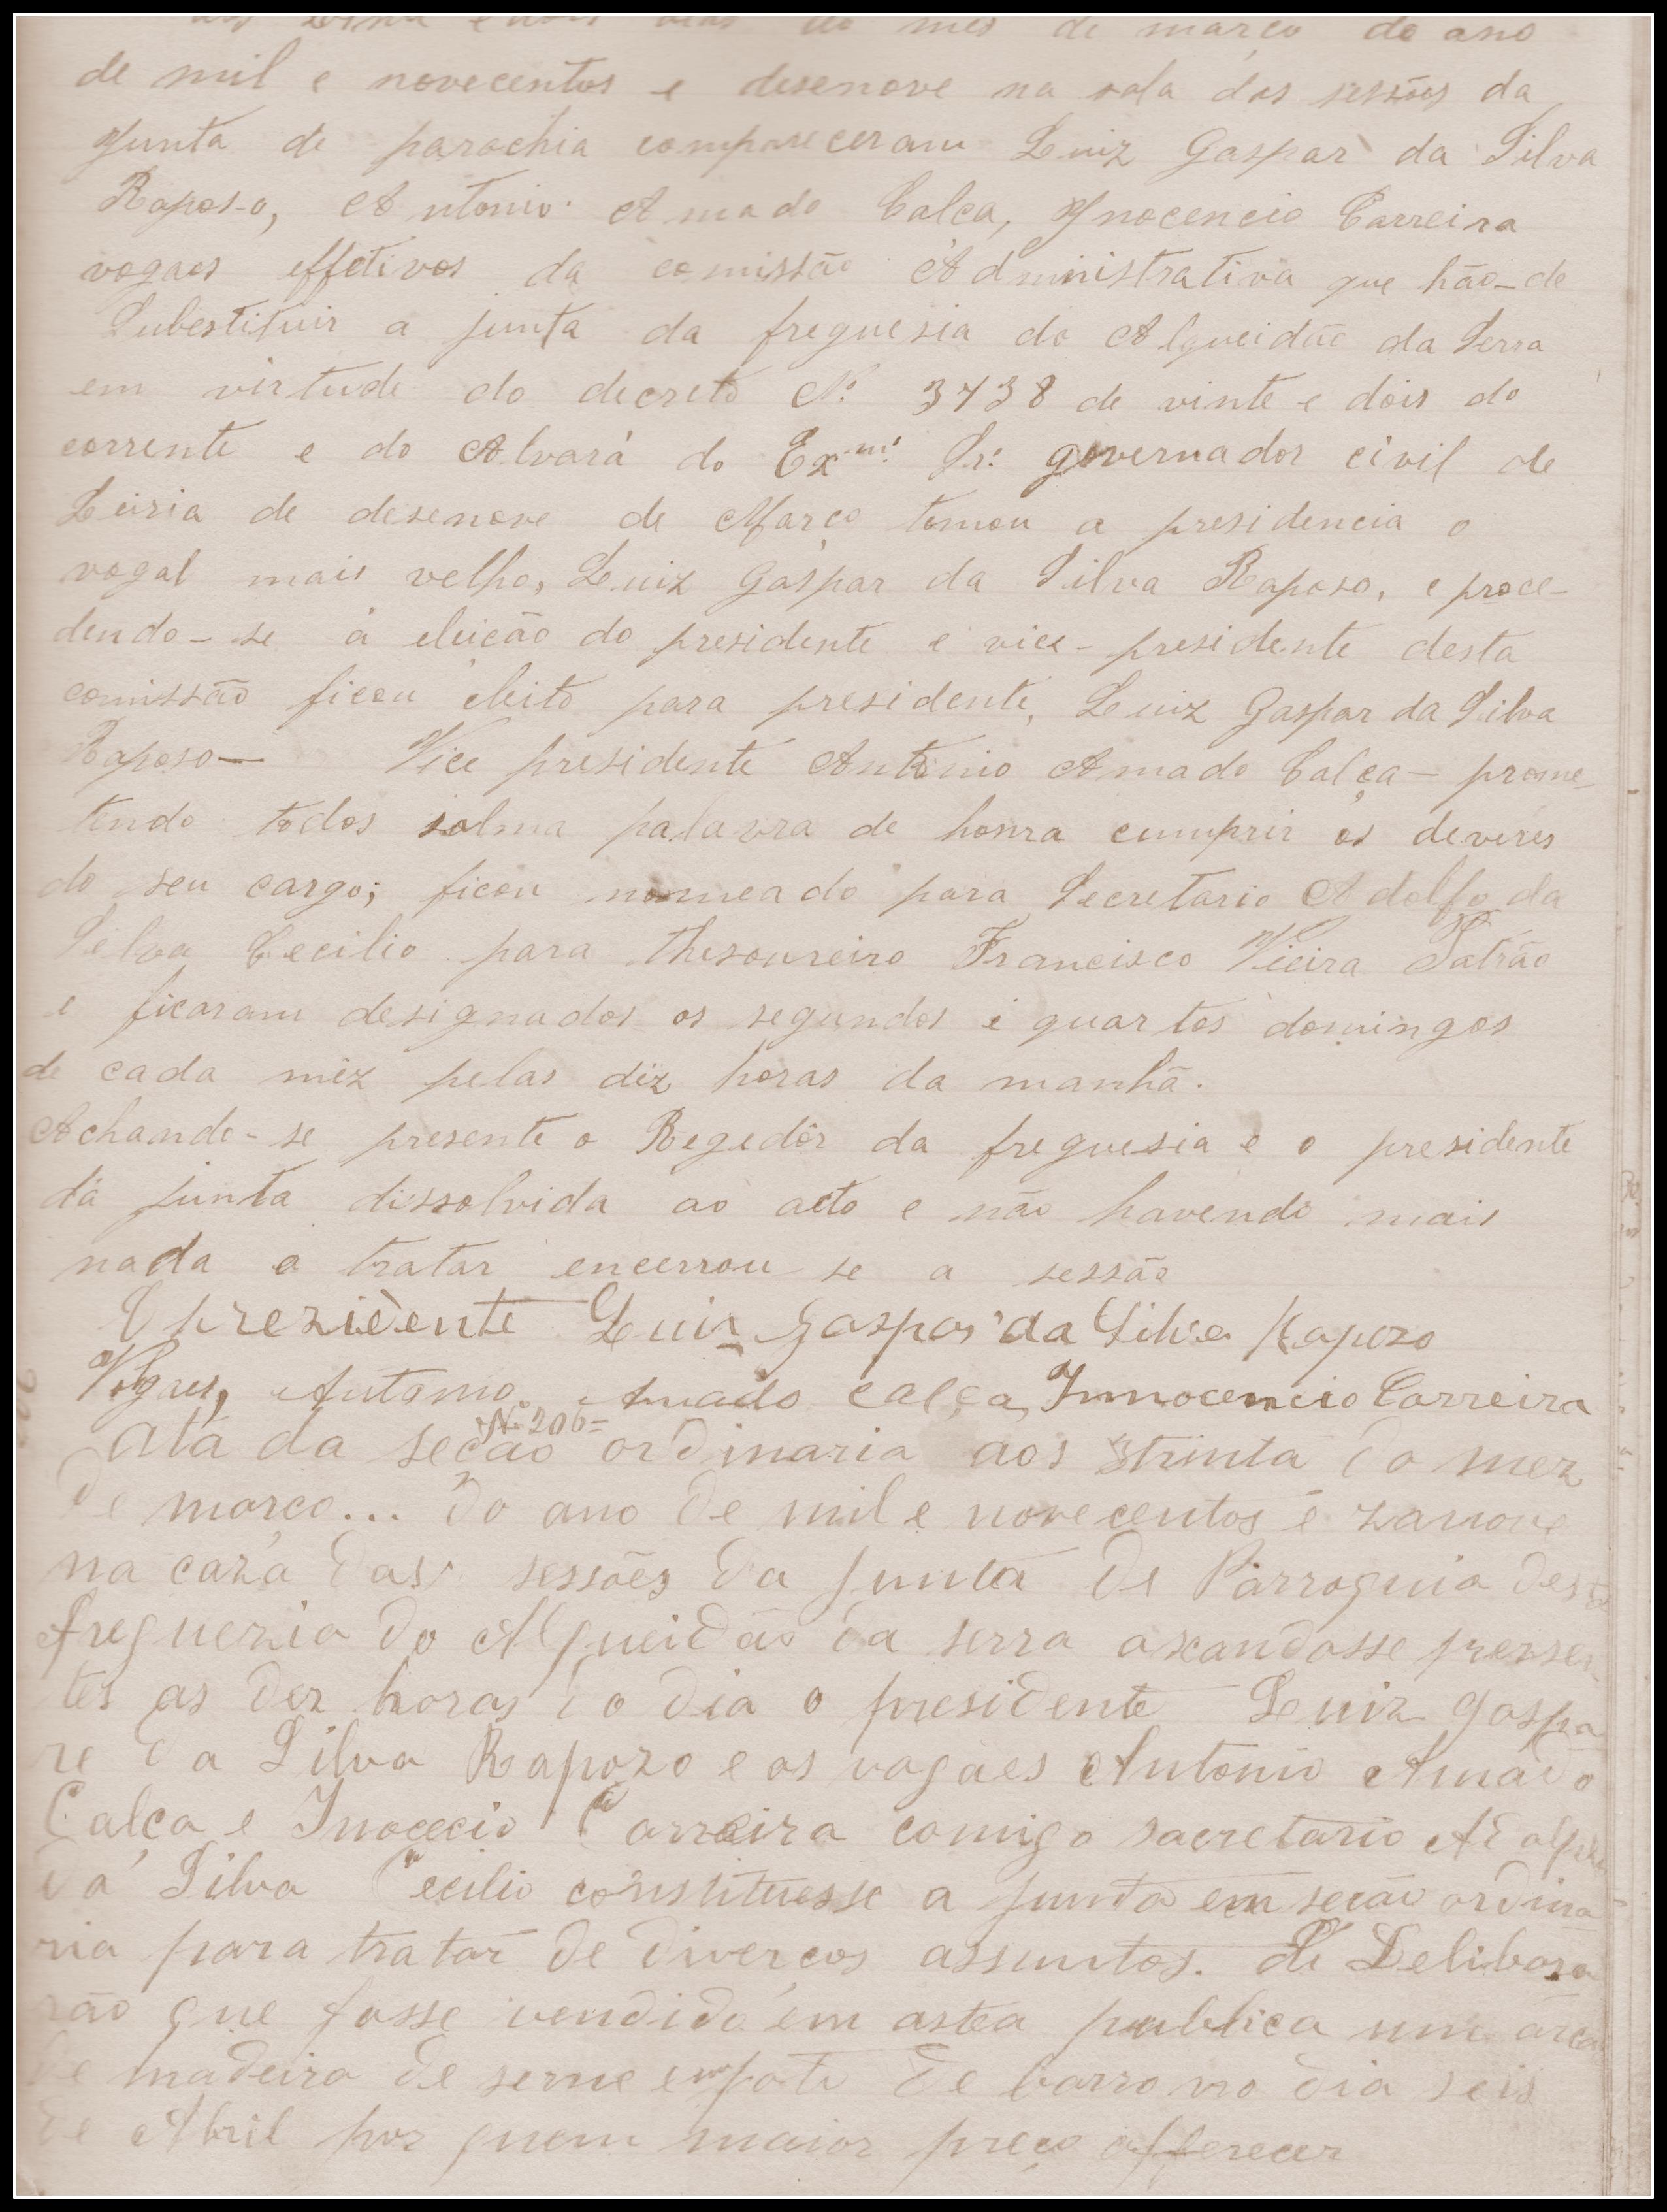 aos vinte e dois dias do mes de março do ano
de mil e novecentos e desenove na sala das sessões da
Junta de parochia compareceram Luiz Gaspar da Silva
Raposo, Antonio Amado Calca, Ynocencio Carreira
vogaes effetivos da comissão Administrativa que hão-de
Subestituir a junta da freguesia do Alqueidão da Serra
em virtude do decreto N.º 3738 de vinte e dois do
corrente e do Alvará do Ex.mº Sr. governador civil de
Leiria de desenove de Março tomou a presidencia o
vogal mais velho, Luiz Gaspar da Silva Raposo, e proce-
dendo-se á eleicão do presidente e vice-presidente desta
comissão ficou eleito para presidente, Luiz Gaspar da Silva
Raposo— Vice presidente Antonio Amado Calça— prome-
tendo todos solma palavra de honra cumprir os deveres
do seu cargo; ficou nomeado para Secretario Adolfo da
Silva Cecilio para thesoureiro Francisco Vieira Patrão
e ficaram designados os segundos e quartos domingos
de cada mêz pelas dêz horas da manhã.
Achando-se presente o Regedôr da freguesia e o presidente
da junta dissolvida ao acto e não havendo mais
nada a tratar encerrou se a sessão
O prezidente Luiz Gaspar da Silva Rapozo
Vogaes, Antonio Amado Calça, Innocencio Carreira
Nº 206=
Ata da secão ordinaria aos trinta do mez
de marco... do ano de mil e novecentos e zanove
na caza das sessões da Junta de Parroquia desta
freguezia do Alqueidão da serra axandosse prezen-
tes as dez horas do dia o presidente Luiz gaspa
re da Silva Rapozo e os vogaes Antonio Amado
Calca e Inocecio Carreira comigo sacretario Adolfo
da Silva Cecilio constituesse a junta em secão ordina
ria para tratar de divercos assuntos. De Delibara
rão que fosse vendido em astea publica um arca
de madeira de serne e um pote de barro no dia seis
de Abril por quem maior preço offerecer